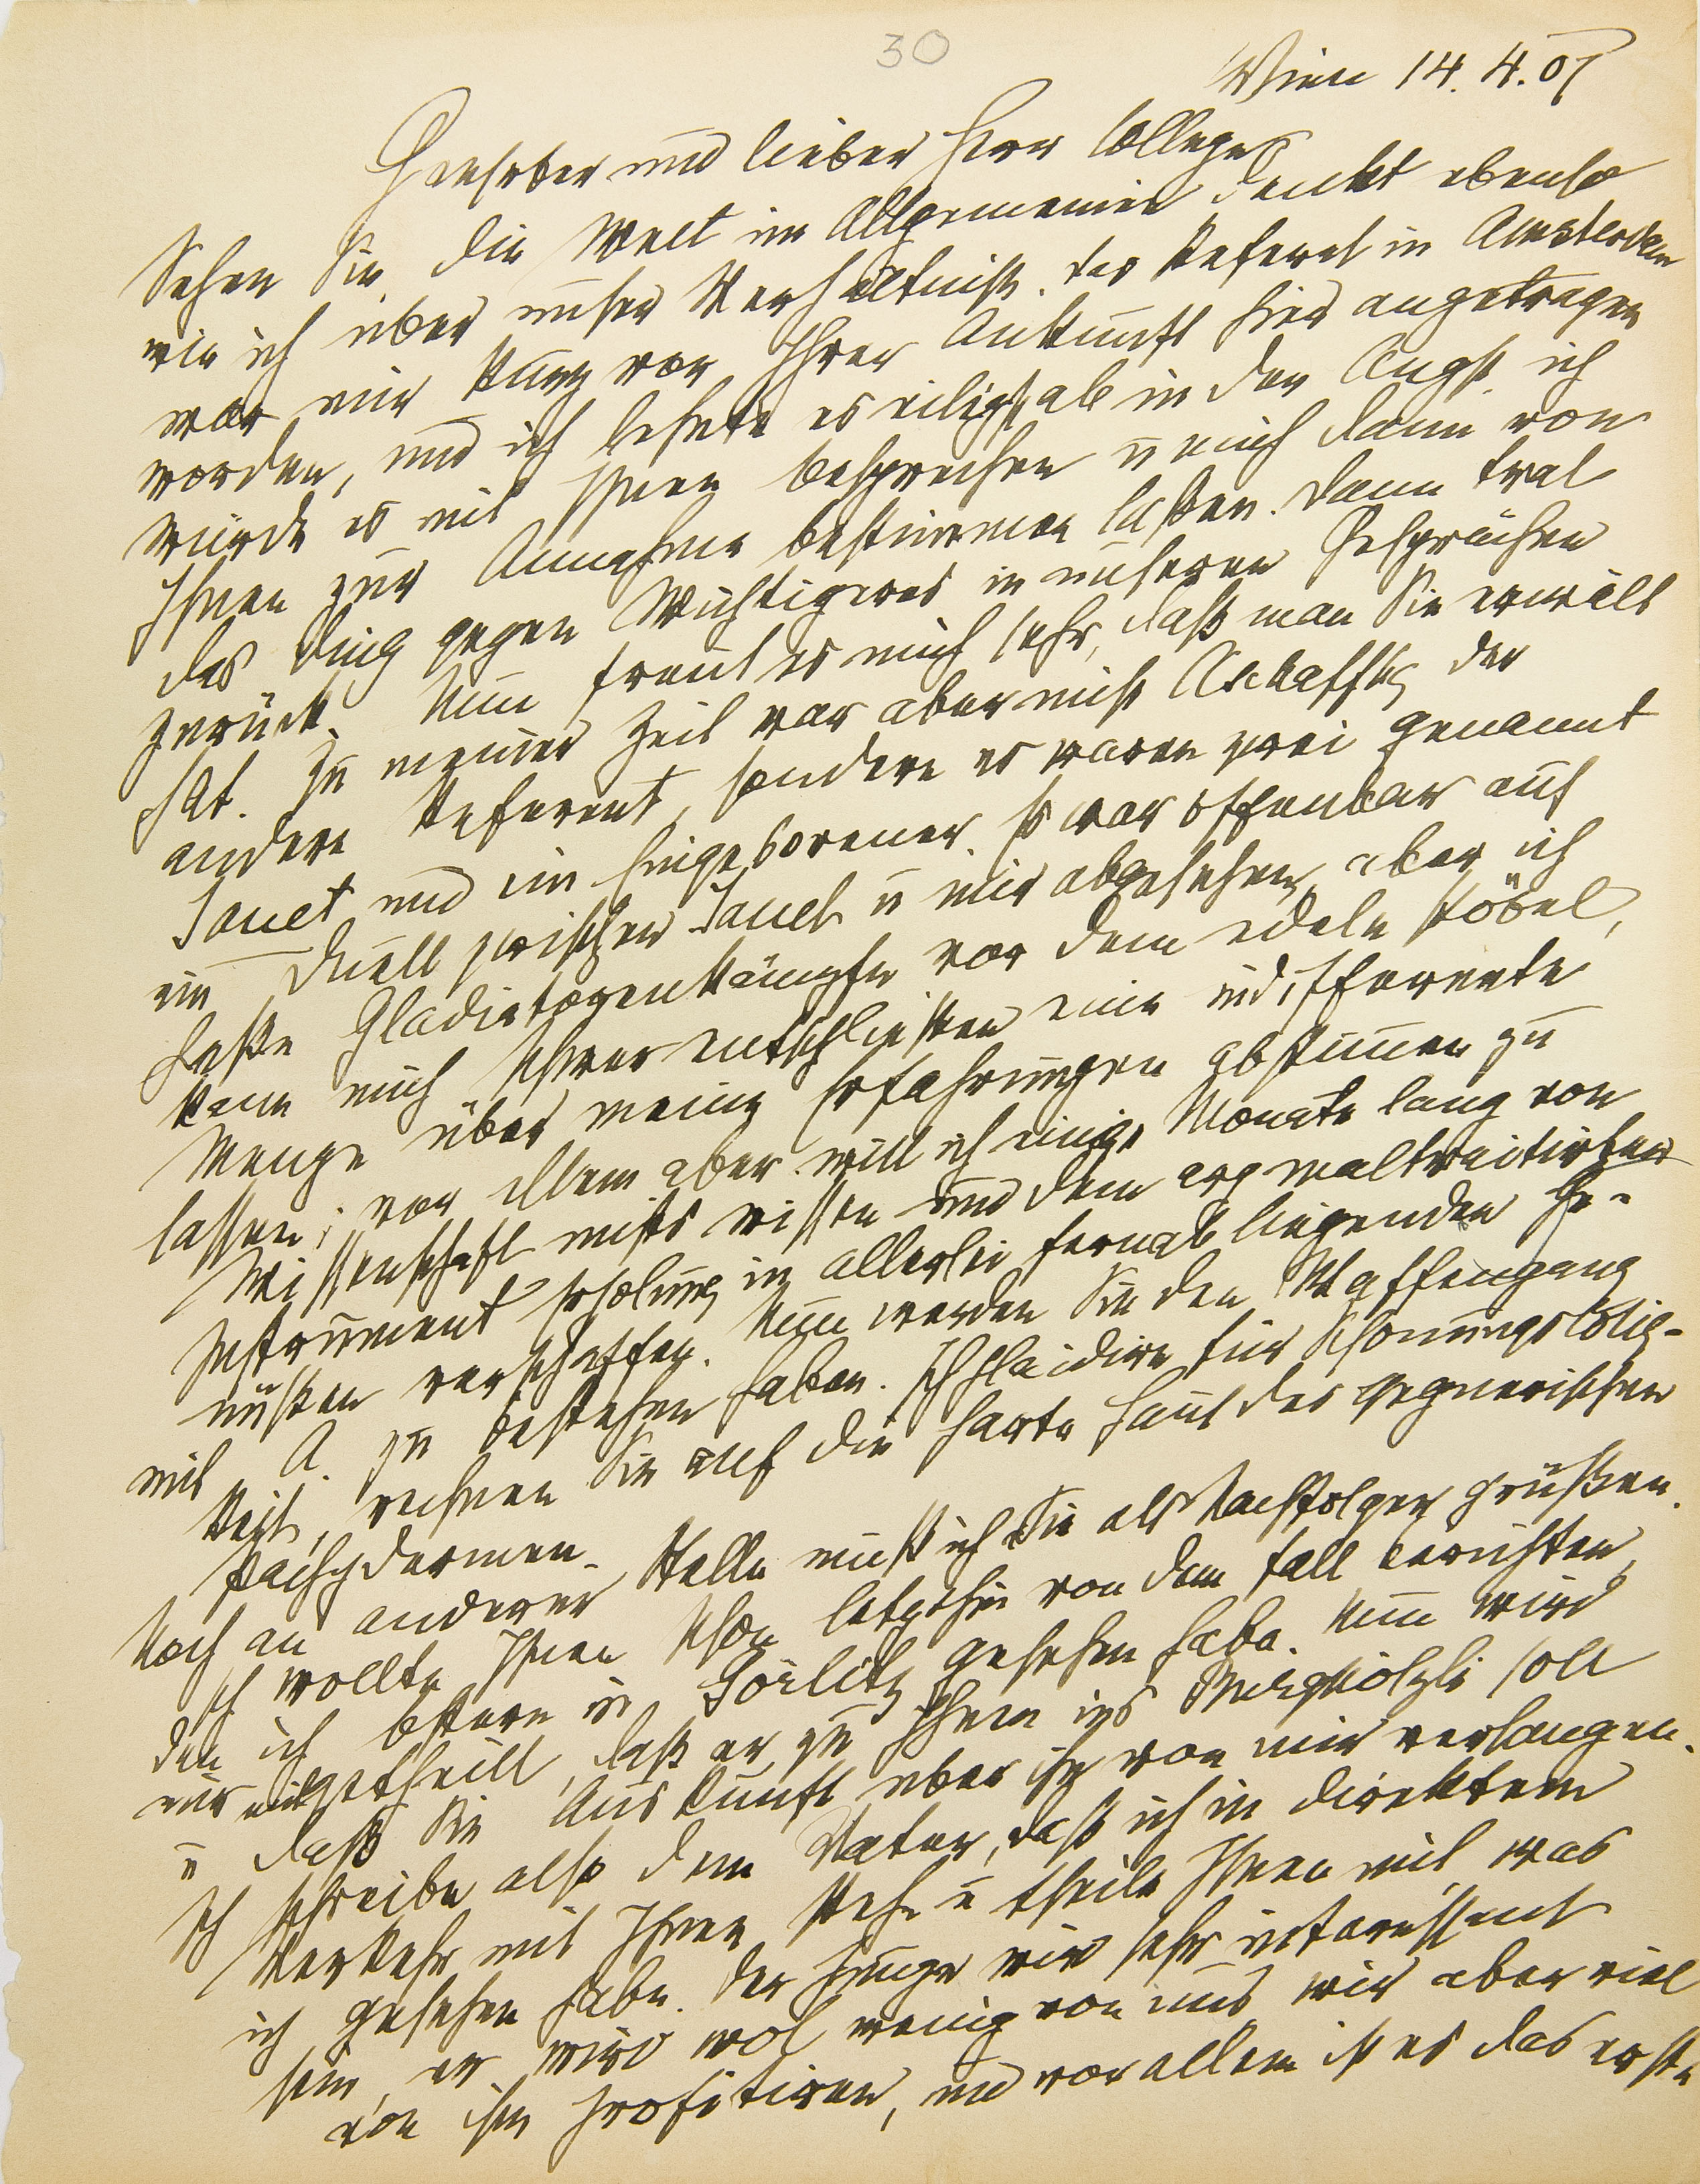 30
Wien 14. 4. 07
Geehrter und lieber Herr College
Sehen Sie, die Welt im Allgemeinen denkt ebenso
wie ich über unser Verhältniß. Das Referat in Amsterdam
war mir kurz vor Ihrer Ankunft hier angetragen
worden, und ich lehnte es eiligst ab in der Angst, ich
würde es mit Ihnen besprechen u mich dann von
Ihnen zur Annahme bestimmen laßen. Dann trat
das Ding gegen Wichtigeres in unseren Gesprächen
zurück. Nun freut es mich sehr, daß man Sie erwält
hat. Zu meiner Zeit war aber nicht Aschaffbg der
andere Referent, sondern es waren zwei genannt
Janet und ein Eingeborener. Es war offenbar auf
ein Duell zwischen Janet u mir abgesehen, aber ich
haße Gladiatorenkämpfe vor dem edeln Pöbel,
kann mich schwer entschließen eine indifferente
Menge über meine Erfahrungen abstimmen zu
lassen; vor Allem aber will ich einige Monate lang von
Wissenschaft nichts wissen und dem arg maltraitirten
Instrument Erholung in allerlei fernab liegenden Ge-
nüßen verschaffen. Nun werden Sie den Waffengang
mit A. zu bestehen haben. Ich plaidire für Schonungslosig-
keit, rechnen Sie auf die harte Haut des gegnerischen
Pachydermen.
Noch an anderer Stelle muß ich Sie als Nachfolger grüßen.
Ich wollte Ihnen schon letzthin von dem Fall berichten,
den ich Ostern in Görlitz gesehen habe. Nun wird
mir mitgetheilt, daß er zu Ihnen ins Burghölzli soll
u daß Sie Auskunft über ihn von mir verlangen.
Ich schreibe also dem Vater, daß ich in direktem
Verkehr mit Ihnen stehe u theile Ihnen mit, was
ich gesehen habe. Der Junge wird sehr interessant
sein, er wird wol wenig von uns wir aber viel
von ihm profitiren, und vor allem ist es das erste